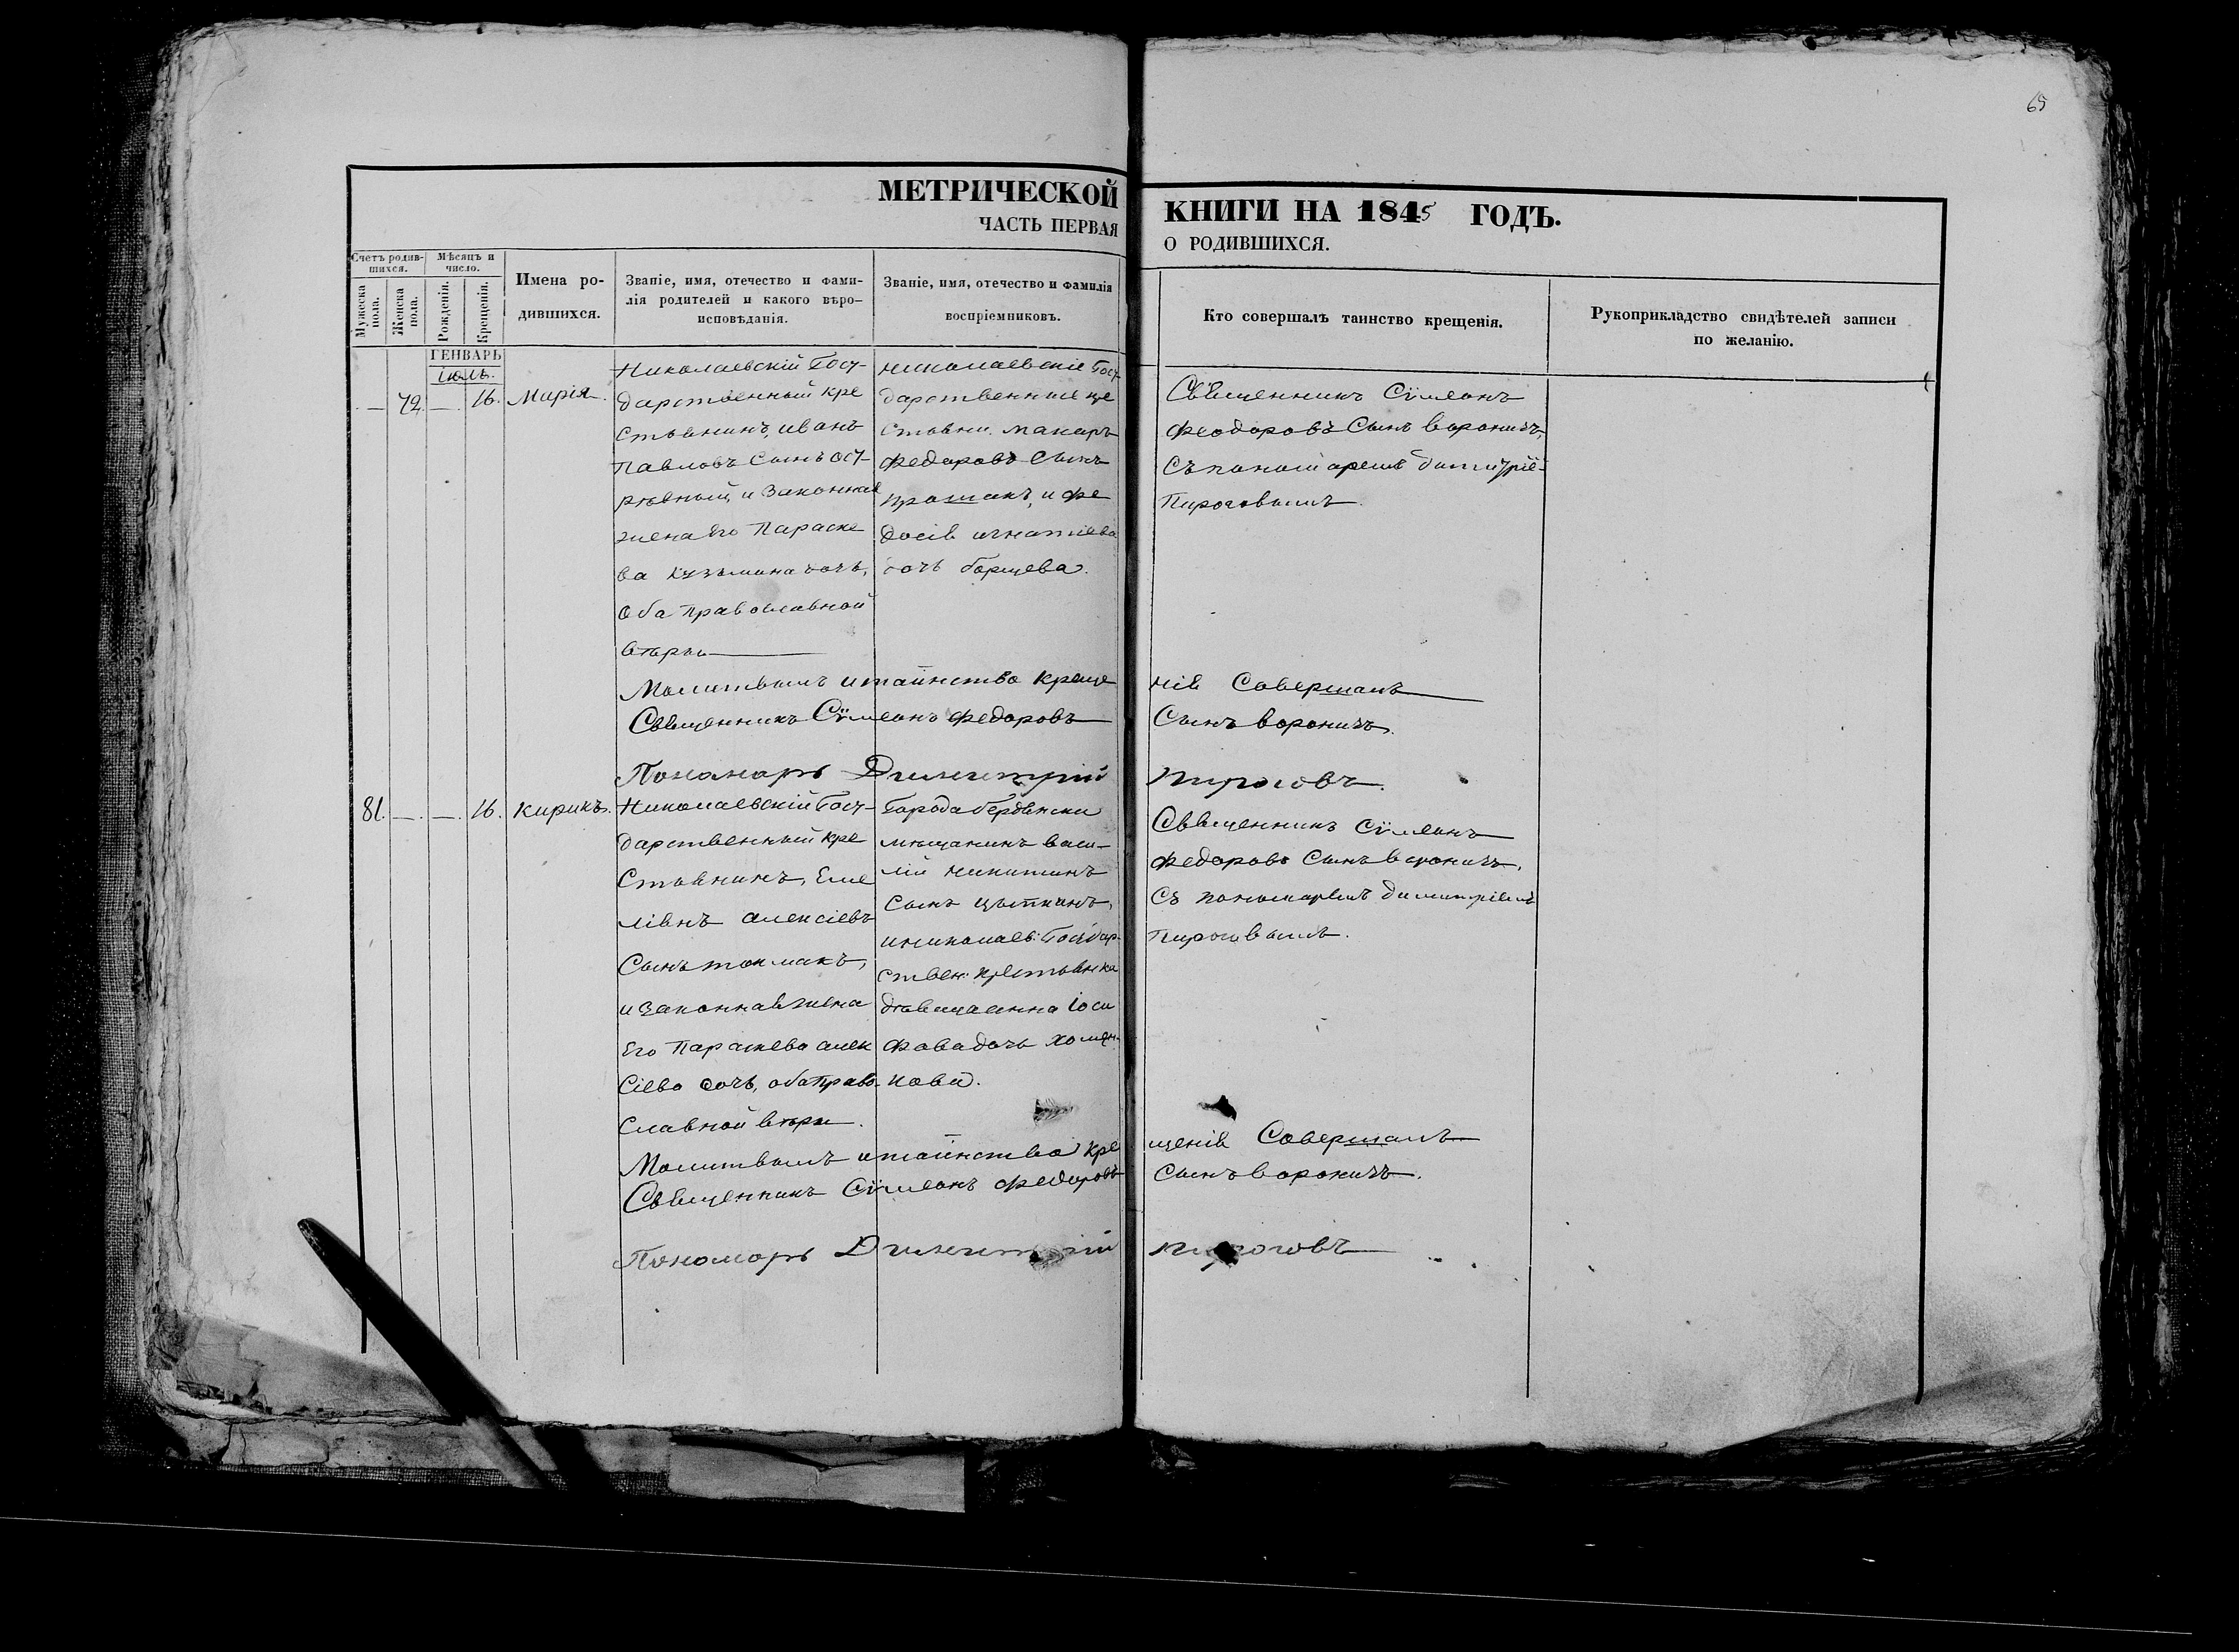 65
МЕТРИЧЕСКОЙ КНИГИ НА 1845 ГОДЪ.
ЧАСТЬ ПЕРВАЯ О РОДИВШИХСЯ.
Счетъ родив-
шихся.
Мѣсяцъ и
число.
Мужеска
пола.
Женска
пола.
Рожденія.
Крещенія.
Имена ро-
дившихся.
Званіе, имя, отечество и фами-
лія родителей и какого вѣро-
исповѣданія.
Званіе, имя, отечество и фамилія
воспріемниковъ.
Кто совершалъ таинство крещенія.
Рукоприкладство свидѣтелей записи
по желанію.
ГЕНВАРЬ
іюль.
— 72. — 16. Марія.
Николаевскій Госу-
дарственный кре
стьянинъ, иванъ
Павловъ Сынъ
и Законная
жена Его Параске
ва Кузьмина дочь,
Оба православной
вѣры
николаевскіе Госу-
дарственные
макаръ
Федоровъ Сынъ
прошакъ, и Фе
досія игнатіева
дочь борщева.
Священникъ Сѵмеонъ
Феодоровъ Сынъ вороничъ,
Съ пономаремъ димитріе-
Пироговымъ.
Молитвымъ и таинство креще нія Совершалъ
Священникъ Сѵмеонъ Федоровъ Сынъ вороничъ.
Пономарь Димитрій пироговъ.
81. — — 16. Кирикъ.
Николаевскій Госу-
дарственный кре
Стьянинъ, Еме
ліянъ алексіевъ
Сынъ токмакъ,
и законная жена
Его Параскева алек
сіева дочь, оба право-
славной вѣры.
Города бердянска
мещанинъ васи-
лій никитинъ
сынъ
и николаев: Государ-
ствен: крестьянка
дѣвица анна іоси
фова дочь
нова.
Священникъ Сѵмеонъ
Федоровъ Сынъ вороничъ,
Съ пономаремъ димитріемъ
Пироговымъ.
Молитвымъ и таинства кре щенія Совершалъ
Священникъ Сѵмеонъ Федоровъ Сынъ вороничъ.
Пономарь Димитрій пироговъ